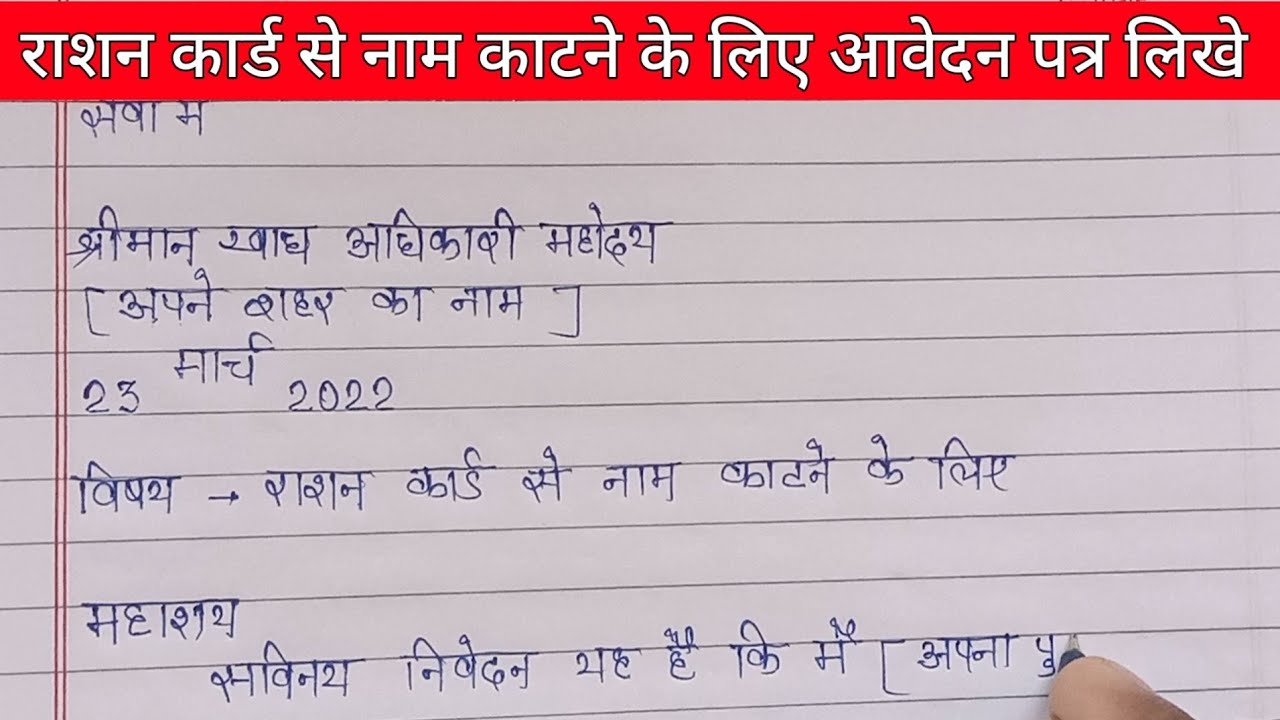 राशन कार्ड से नाम काटने के लिए आवेदन पत्र लिखे
सेवा में
श्रीमान खाद्य अधिकारी महोदय
[ अपने शहर का नाम ]
23 मार्च 2022
विषय → राशन कार्ड से नाम काटने के लिए
महाशय
सविनय निवेदन यह है कि मैं [ अपना पु